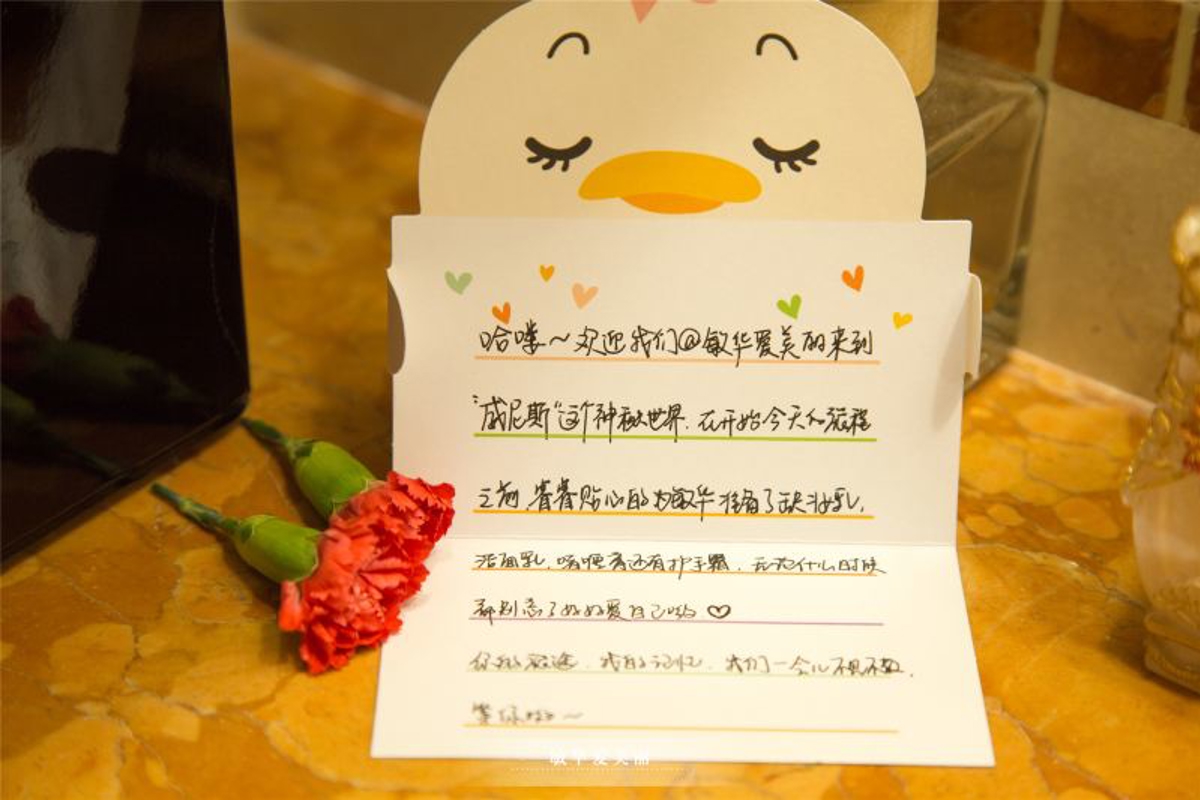 哈喽～欢迎我们@敏华爱美丽来到
“威尼斯”这个神秘世界，在开始今天的旅程
之前，青青贴心的为敏华准备了卸妆乳，
洁面乳，啫喱膏还有护手霜，无论什么时候
都别忘了好好爱自己哟♡
你的旅途，我的记忆，我们一会儿不见不散，
等你呦～
敏华爱美丽